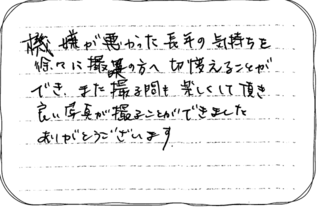 機嫌が悪かった長平の気持ちを
徐々に撮影の方へ切換えることが
でき、また撮る間も楽しくして頂き
良い写真が撮ることができました
ありがとうございます。